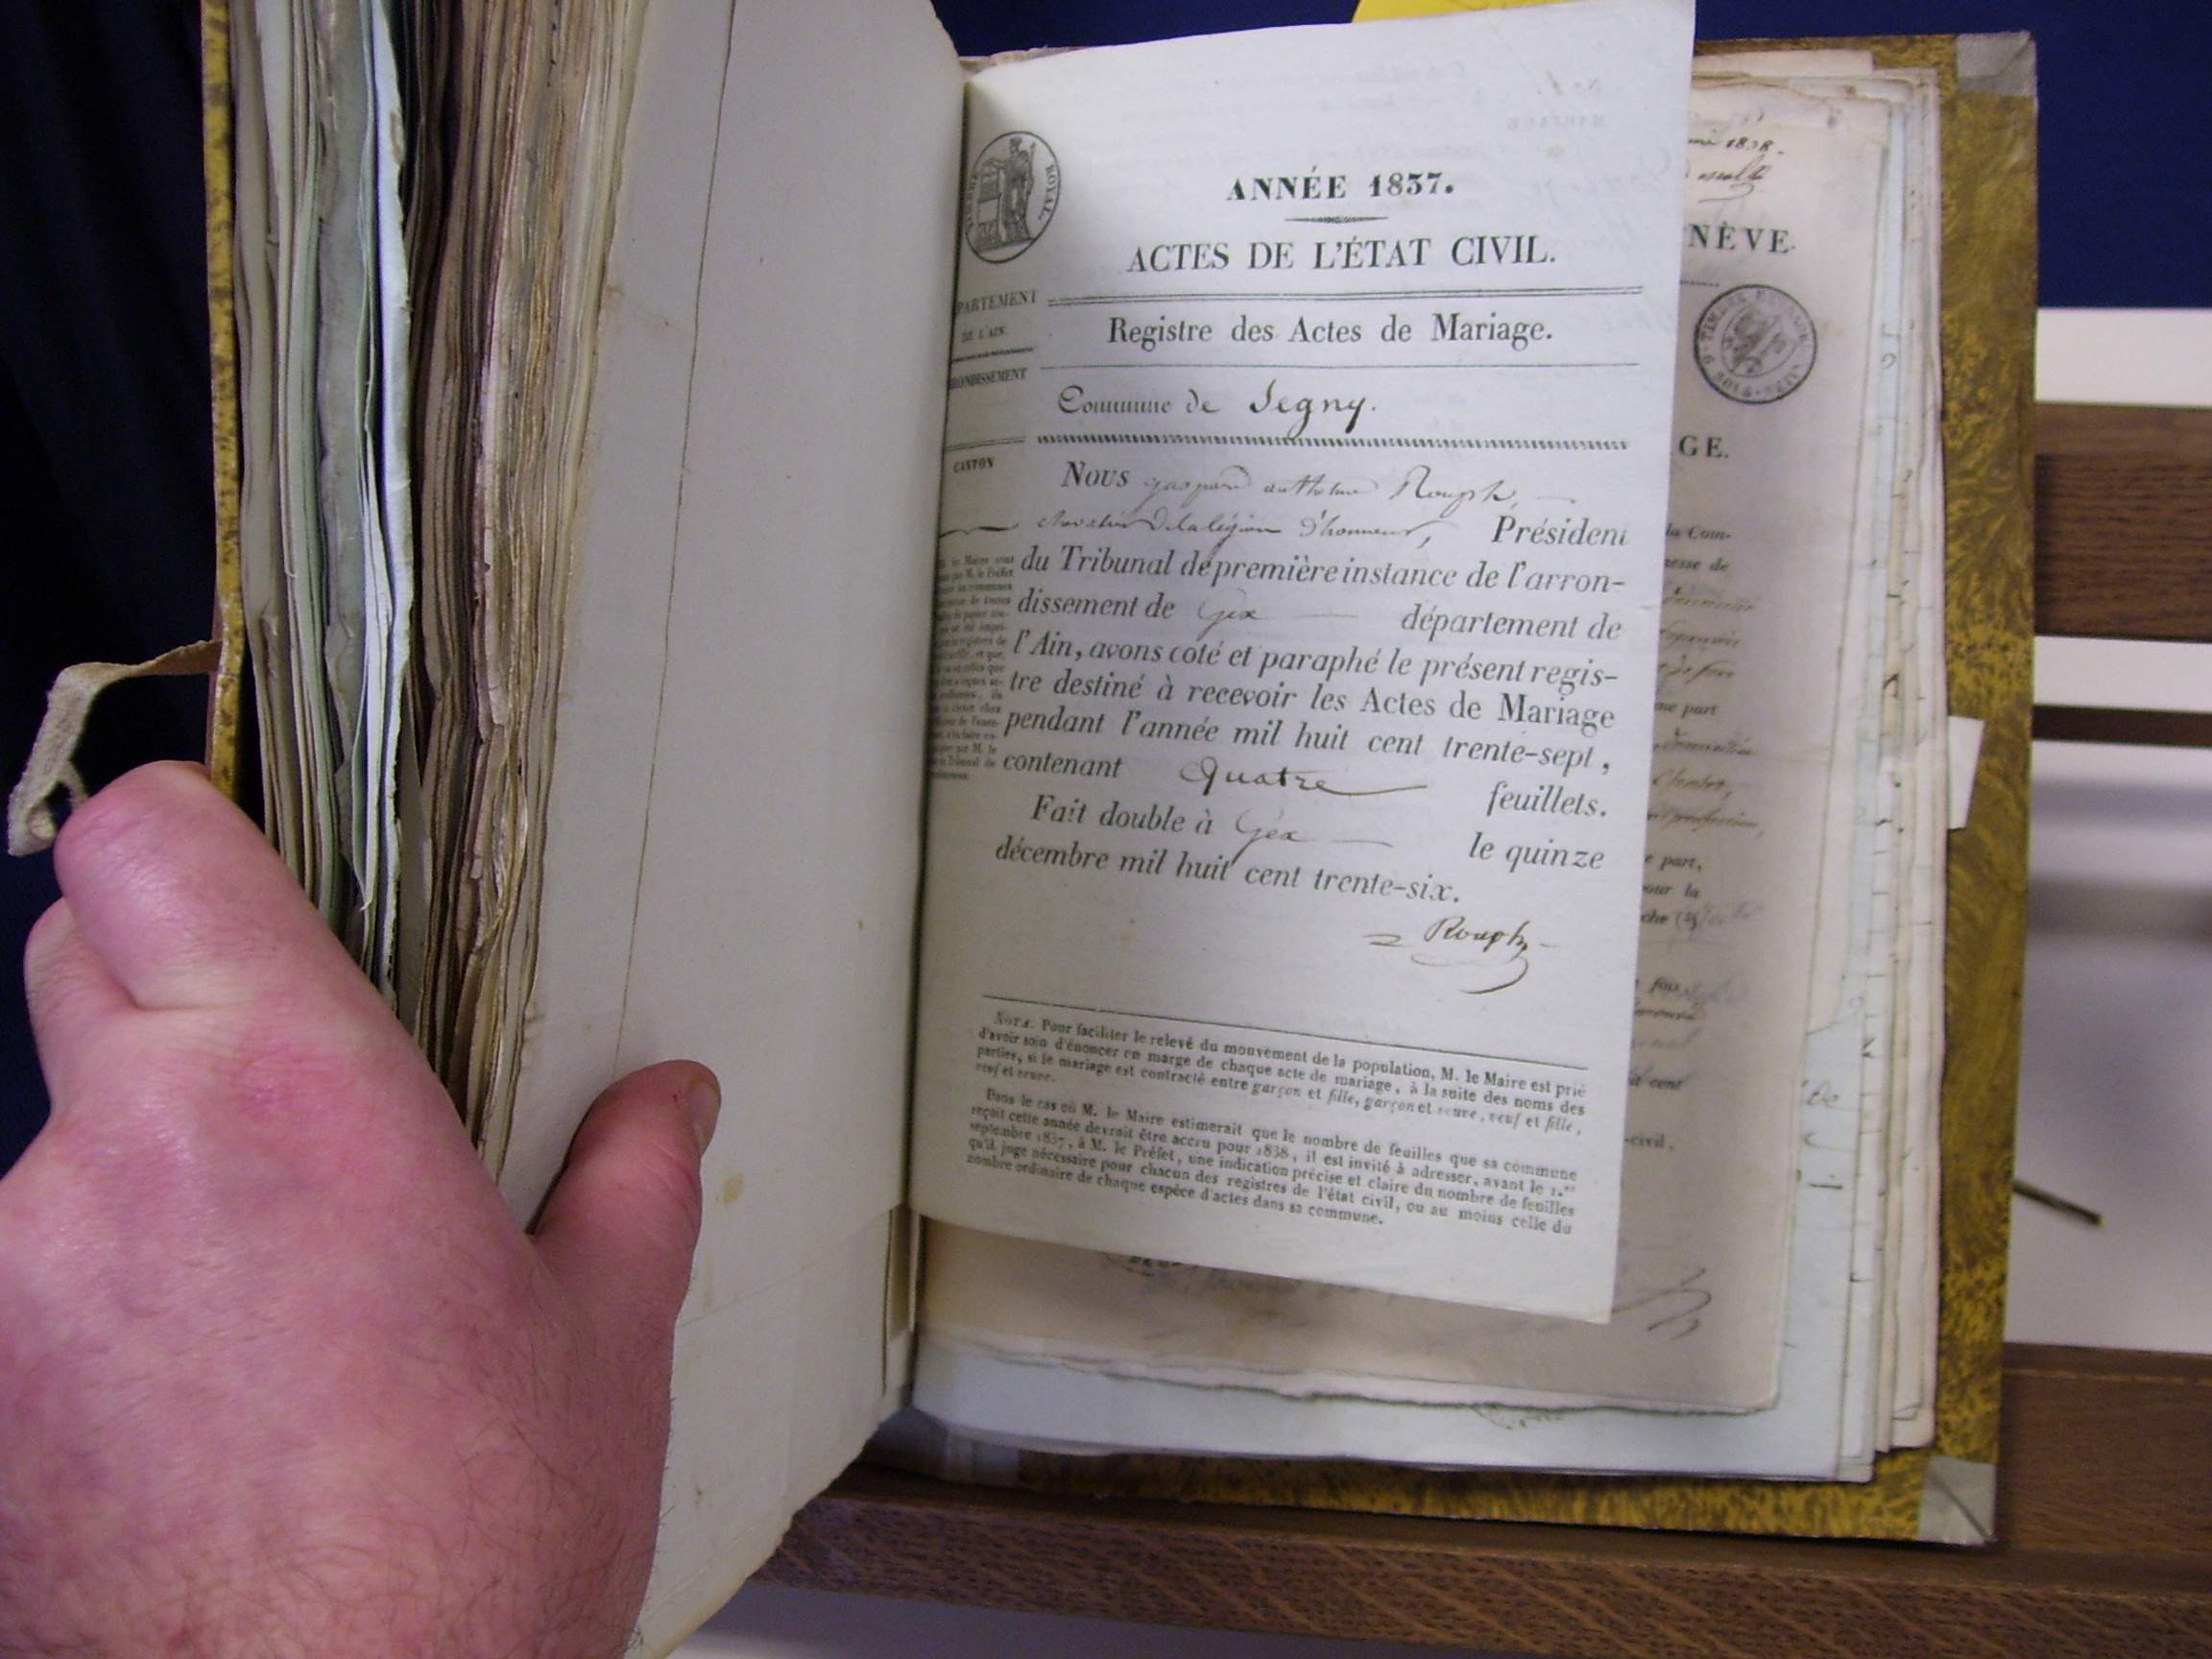 ROYAL.
ANNÉE 1837.
ACTES DE L'ÉTAT CIVIL.
PARTEMENT
DE L'AIN.
Registre des Actes de Mariage.
RONDISSEMENT
Commune de Segny.
CANTON
Nous gaspard anthelme Rouph,
chevalier de la légion d'honneur, Président
du Tribunal de première instance de l'arron-
dissement de Gex département de
l'Ain, avons coté et paraphé le présent regis-
tre destiné à recevoir les Actes de Mariage
pendant l'année mil huit cent trente-sept,
contenant Quatre feuillets.
Fait double à Gex le quinze
décembre mil huit cent trente-six.
Rouph
NOTA. Pour faciliter le relevé du mouvement de la population, M. le Maire est prié
d'avoir soin d'énoncer en marge de chaque acte de mariage, à la suite des noms des
parties, si le mariage est contracté entre garçon et fille, garçon et veuve, veuf et fille,
veuf et veuve.
Dans le cas où M. le Maire estimerait que le nombre de feuilles que sa commune
reçoit cette année devrait être accru pour 1838, il est invité à adresser, avant le 1.er
septembre 1837, à M. le Préfet, une indication précise et claire du nombre de feuilles
qu'il juge nécessaire pour chacun des registres de l'état civil, ou au moins celle du
nombre ordinaire de chaque espèce d'actes dans sa commune.
1838.
NÈVE.
GE.
la Com-
nesse de
ne part
e part,
our la
che (3)
fois
it cent
-civil,